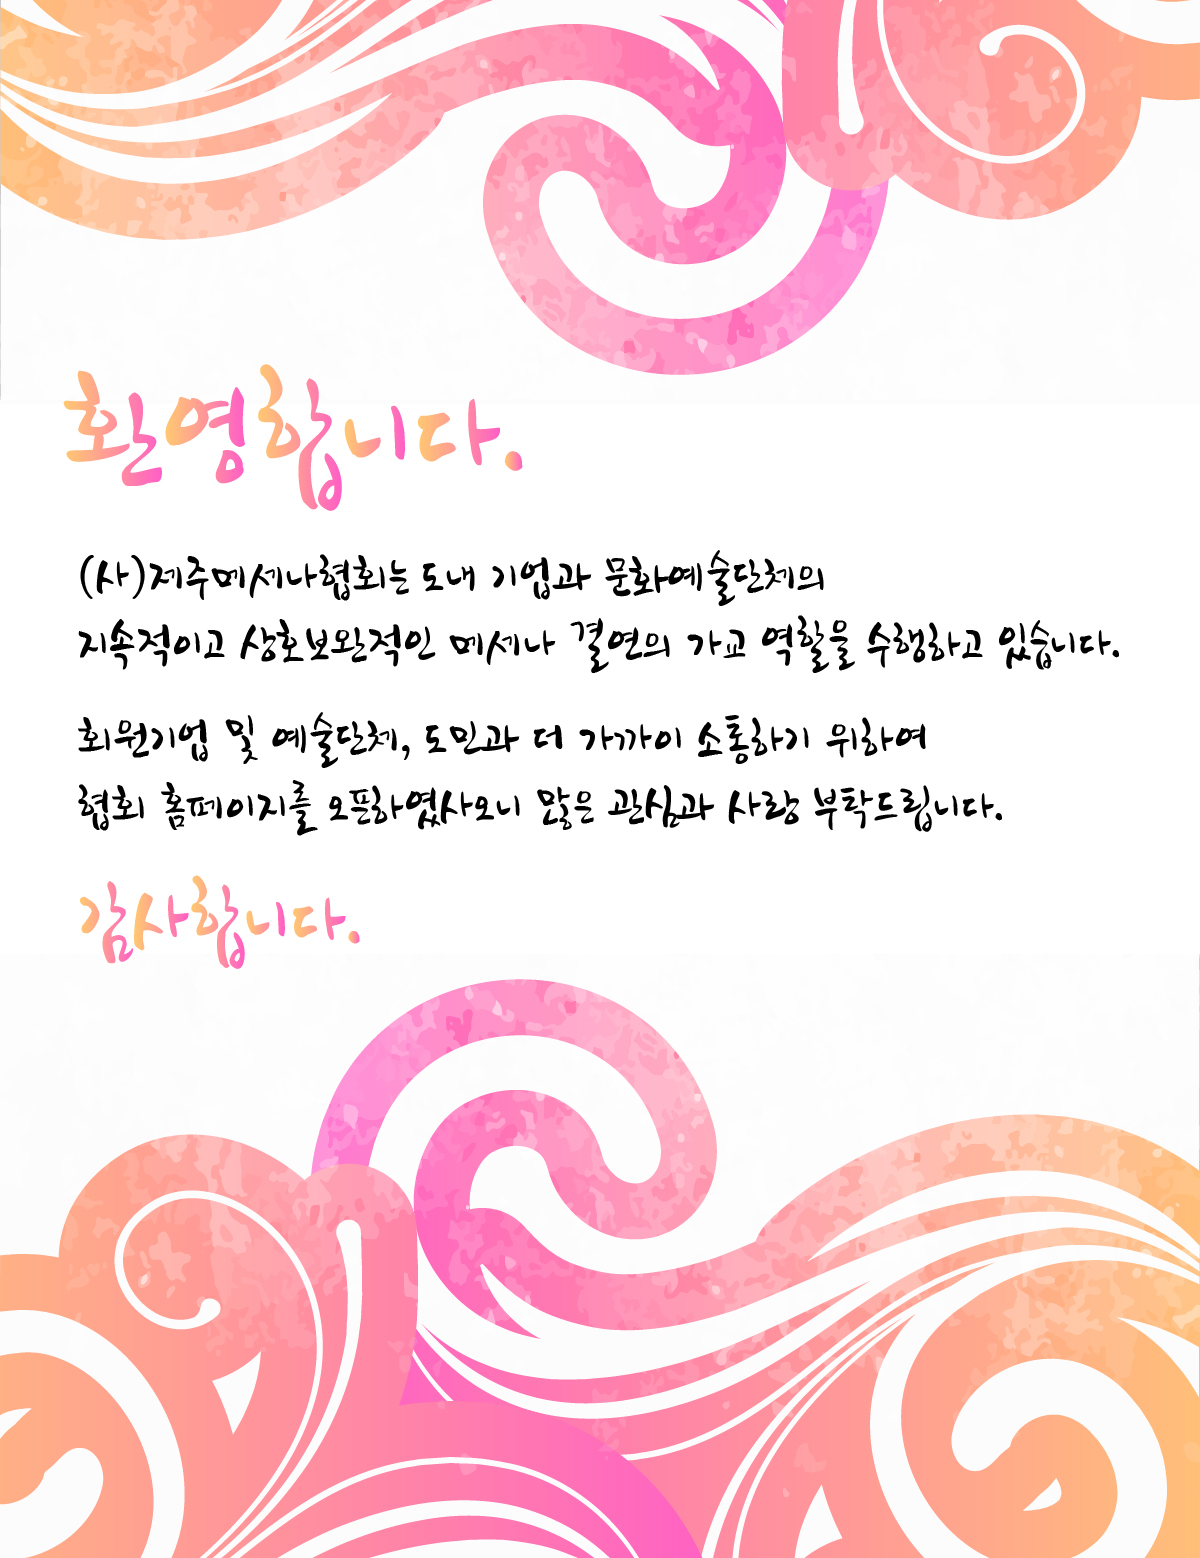 환영합니다.
(사)제주메세나협회는 도내 기업과 문화예술단체의
지속적이고 상호보완적인 메세나 결연의 가교 역할을 수행하고 있습니다.
회원기업 및 예술단체, 도민과 더 가까이 소통하기 위하여
협회 홈페이지를 오픈하였사오니 많은 관심과 사랑 부탁드립니다.
감사합니다.